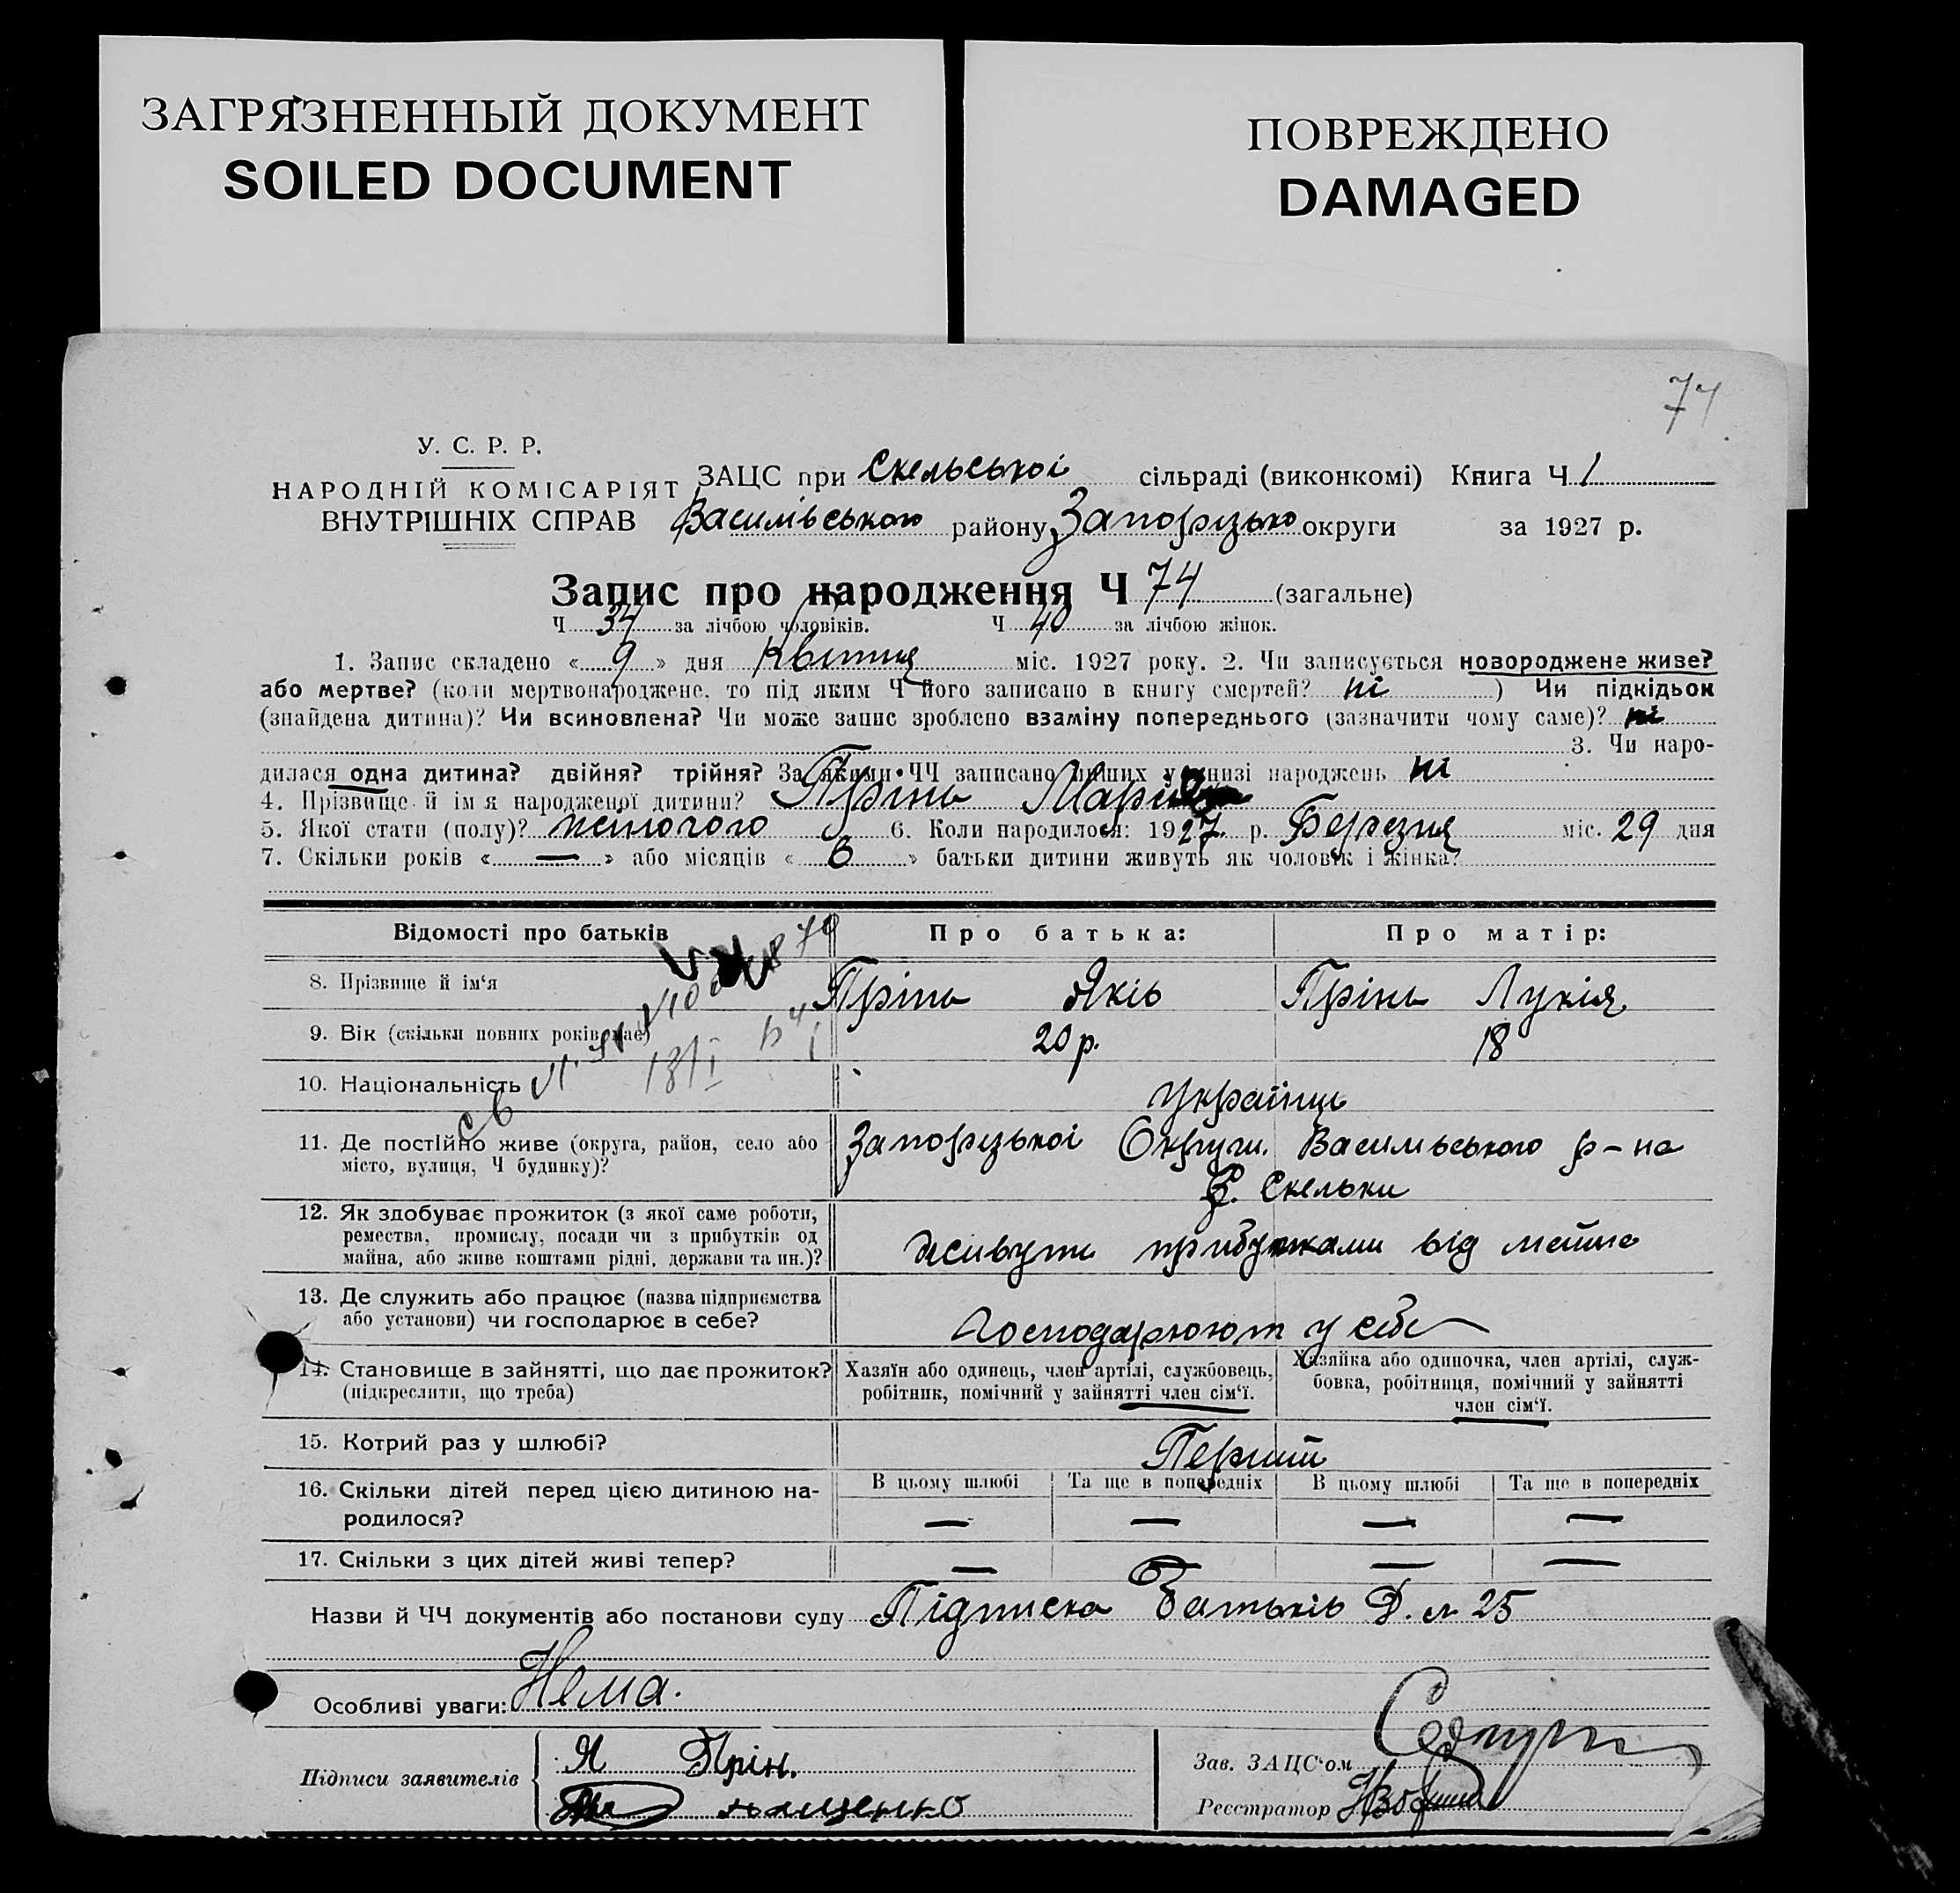 ЗАГРЯЗНЕННЫЙ ДОКУМЕНТ
SOILED DOCUMENT
ПОВРЕЖДЕНО
DAMAGED
74
У. С. Р. Р.
НАРОДНІЙ КОМІСАРІЯТ
ВНУТРІШНІХ СПРАВ
ЗАЦС при Скельської сільраді (виконкомі) Книга Ч 1
Василівського району Запорізько округи за 1927 р.
Запис про народження Ч 74 (загальне)
Ч 34 за лічбою чоловіків. Ч 40 за лічбою жінок.
1. Запис складено « 9 » дня Квітня міс. 1927 року. 2. Чи записується новороджене живе?
або мертве? (коли мертвонароджене, то під яким Ч його записано в книгу смертей? ні ) Чи підкідьок
(знайдена дитина)? Чи всиновлена? Чи може запис зроблено взаміну попереднього (зазначити чому саме)? ні
3. Чи наро-
дилася одна дитина? двійня? трійня? За якими ЧЧ записано інших у книзі народжень ні
4. Прізвище й імя народженої дитини? Прінь
5. Якої статі (полу)? жіночого 6. Коли народилося: 1927 р. Березня міс. 29 дня
7. Скільки років « — » або місяців « 6 » батьки дитини живуть як чоловік і жінка?
Відомості про батьків Про батька: Про матір:
8. Прізвище й ім‘я Прінь Яків Прінь Лукія
9. Вік (скільки повних років має) 20 р. 18
10. Національність Українці
11. Де постійно живе (округа, район, село або Запорізької Округи. Василівського р-на
місто, вулиця, Ч будинку)? С. Скельки
12. Як здобуває прожиток (з якої саме роботи,
ремества, промислу, посади чи з прибутків од
майна, або живе коштами рідні, держави та ин.)? живуть прибутками від майна
13. Де служить або працює (назва підприємства
або установи) чи господарює в себе? Господарюют у себе
14. Становище в зайнятті, що дає прожиток? Хазяїн або одинець, член артілі, службовець, Хазяйка або одиночка, член артілі, служ-
(підкреслити, що треба) робітник, помічний у зайнятті член сім‘ї. бовка, робітниця, помічний у зайнятті
член сім‘ї.
15. Котрий раз у шлюбі? Перший
16. Скільки дітей перед цією дитиною на- В цьому шлюбі Та ще в попередніх В цьому шлюбі Та ще в попередніх
родилося? — — — —
17. Скільки з цих дітей живі тепер? — — — —
Назви й ЧЧ документів або постанови суду Підписка Батьків Д. 25
Особливі уваги: Нема.
Підписи заявителів Я Прін.
Зав. ЗАЦС‘ом
Реєстратор